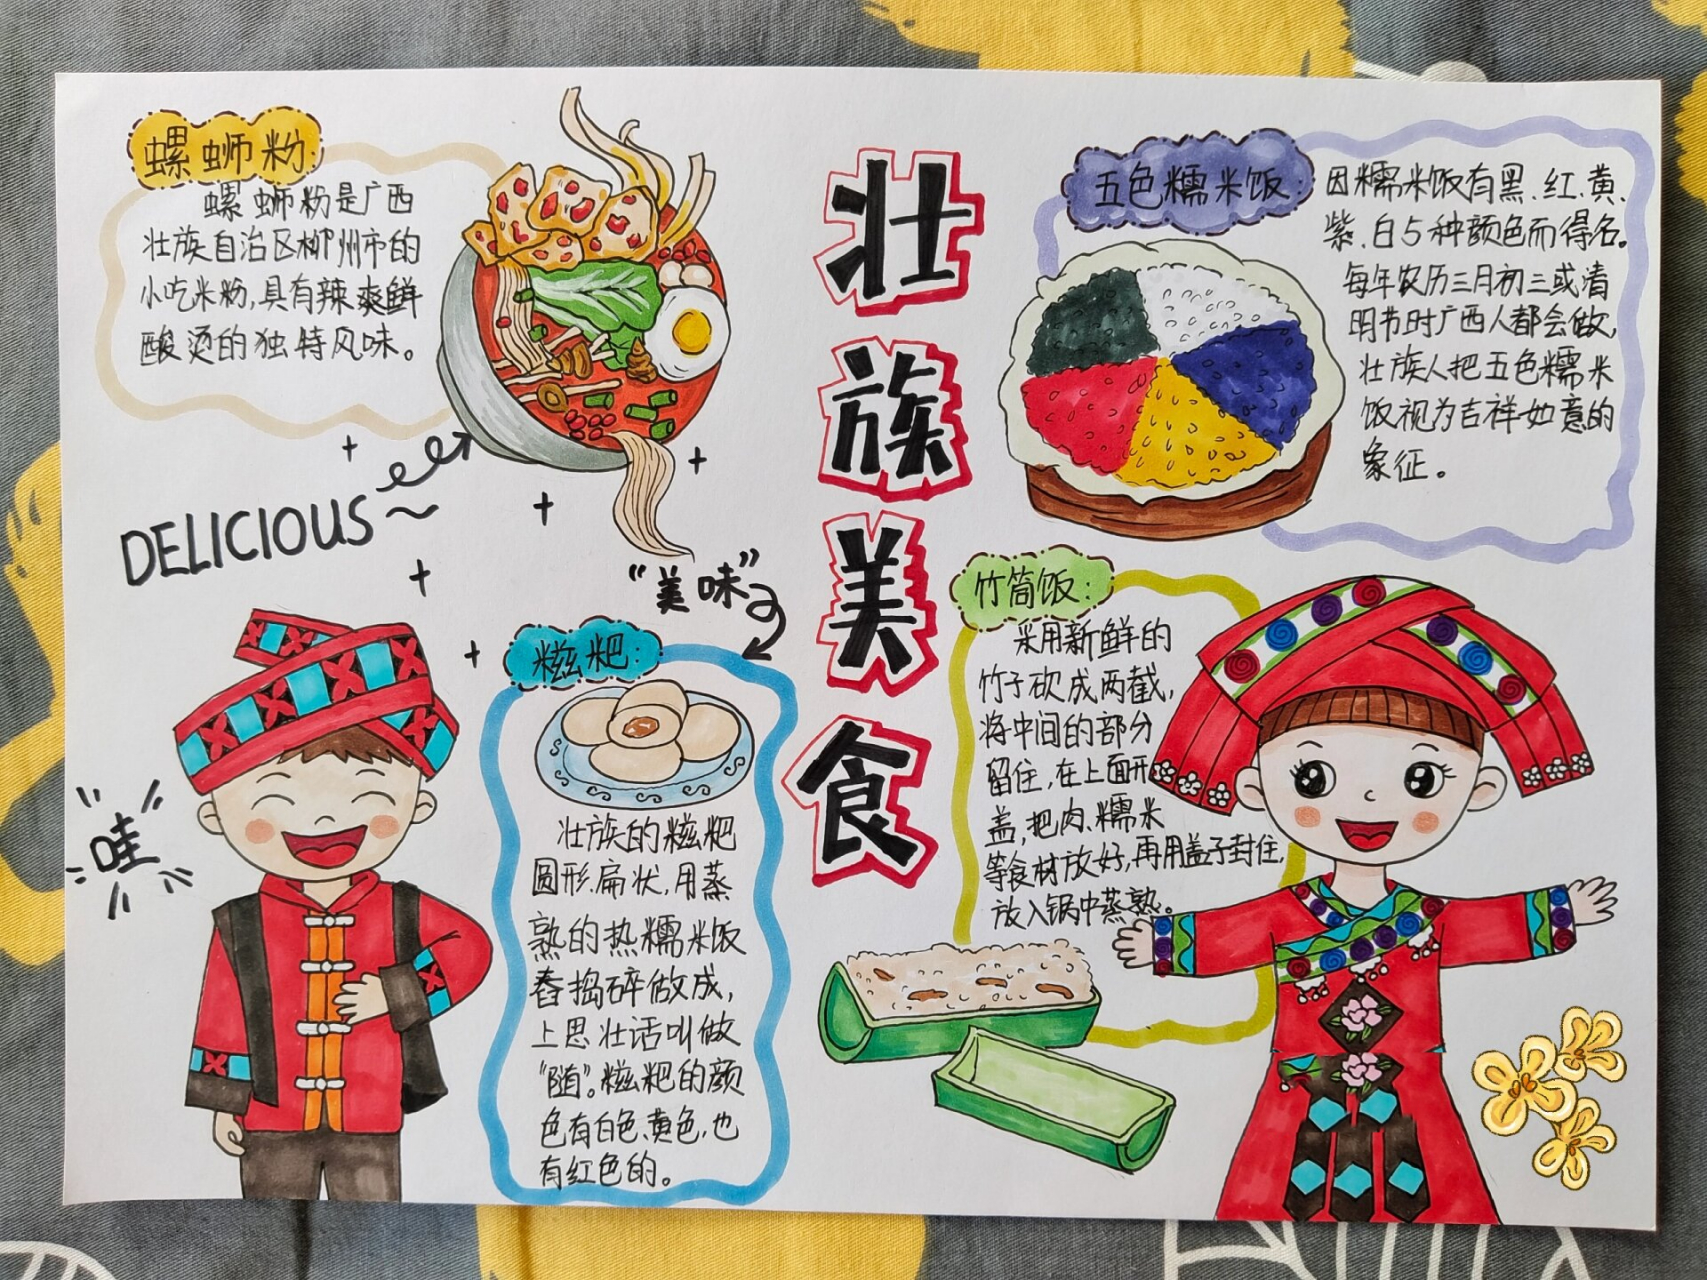 螺蛳粉:
螺蛳粉是广西
壮族自治区柳州市的
小吃米粉,具有辣爽鲜
酸烫的独特风味。
DELICIOUS~
“美味”
哇
糍粑:
壮族的糍粑
圆形.扁状,用蒸
熟的热糯米饭
舂捣碎做成,
上思壮话叫做
“随”。糍粑的颜
色有白色、黄色,也
有红色的。
壮
族
美
食
五色糯米饭:
因糯米饭有黑、红、黄、
紫、白5种颜色而得名。
每年农历三月初三或清
明节时广西人都会做,
壮族人把五色糯米
饭视为吉祥如意的
象征。
竹筒饭:
采用新鲜的
竹子砍成两截,
将中间的部分
留住,在上面开
盖,把肉、糯米
等食材放好,再用盖子封住,
放入锅中蒸熟。